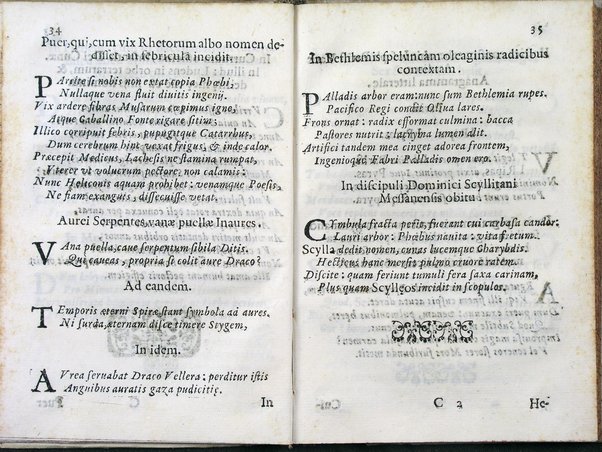 34
Puer, qui, cum vix Rhetorum albo nomen de-
disset, in febricula incidit.
PArcite si nobis non extat copia Phœbi,
Nullaque vena fluit diuitis ingenij.
Vix ardere fibras Musarum cœpimus igne,
Atque Caballino Fonte rigare sitim;
Illico corripuit febris, pupugitque Catarrhus,
Dum cerebrum hinc vexat frigus, & inde calor.
Præcepit Medicus, Lachesis ne stamina rumpat,
Viterer vt volucrum pectore, non calamis:
Nunc Heliconis aquam prohibet: venamque Poesis,
Ne fiam exanguis, dissecuisse vetat.
Aurei Serpentes vanæ puellæ Inaures.
VAna puella, caue serpentum sibila Ditis.
Qui caueas, propria si colit aure Draco?
Ad eandem.
TEmporis æterni Spiræ stant symbola ad aures.
Ni surda, æternam disce timere Stygem,
In idem.
AVrea seruabat Draco Vellera: perditur istis
Anguibus auratis gaza pudicitiæ.
C
In
35
In Bethlemis speluncam oleaginis radicibus
contextam.
PAlladis arbor eram: nunc sum Bethlemia rupes.
Pacifico Regi condit Oliua lares.
Frons ornat: radix efformat culmina: bacca
Pastores nutrit: lacryma lumen alit.
Artifici tandem mea cinget adorea frontem,
Ingenioque Fabri Palladis omen ero.
In discipuli Dominici Scyllitani
Messanensis obitu.
CYmbula fracta petis, fuerant cui carbasa candor:
Lauri arbor: Phœbus nauita: vita fretum.
Scylla dedit nomen, ouans lucemque Charybdis.
Hecticus hanc morsis pulmo cruore ratem.
Discite: quam feriunt tumuli fera saxa carinam,
Plus quam Scyllęos incidit in scopulos.
C 2
He-